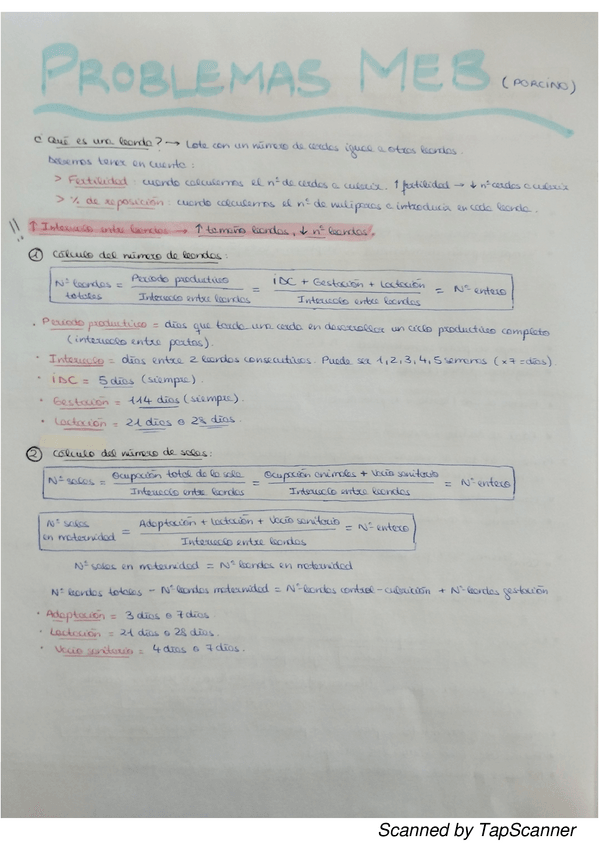 PROBLEMAS MEB (PORCINO)
¿Qué es una banda? → Lote con un número de cerdas igual a otras bandas.
Debemos tener en cuenta:
> Fertilidad: cuando calculemos el nº de cerdas a cubrir. ↑ fertilidad → ↓ nº cerdas a cubrir
> % de reposición: cuando calculemos el nº de nulíparas a introducir en cada banda.
!! ↑ Intervalo entre bandas → ↑ tamaño bandas, ↓ nº bandas.
① Cálculo del número de bandas:
Nº bandas totales = Periodo productivo / Intervalo entre bandas = iDC + Gestación + Lactación / Intervalo entre bandas = Nº entero
· Periodo productivo = días que tarda una cerda en desarrollar un ciclo productivo completo
(intervalo entre partos).
· Intervalo = días entre 2 bandas consecutivas. Puede ser 1, 2, 3, 4, 5 semanas (x7 = días).
· iDC = 5 días (siempre).
· Gestación = 114 días (siempre).
· Lactación = 21 días o 28 días.
② Cálculo del número de salas:
Nº salas = Ocupación total de la sala / Intervalo entre bandas = Ocupación animales + Vacío sanitario / Intervalo entre bandas = Nº entero
Nº salas en maternidad = Adaptación + Lactación + Vacío sanitario / Intervalo entre bandas = Nº entero
Nº salas en maternidad = Nº bandas en maternidad
Nº bandas totales - Nº bandas maternidad = Nº bandas control-cubrición + Nº bandas gestación
· Adaptación = 3 días o 7 días.
· Lactación = 21 días o 28 días.
· Vacío sanitario = 4 días o 7 días.
Scanned by TapScanner